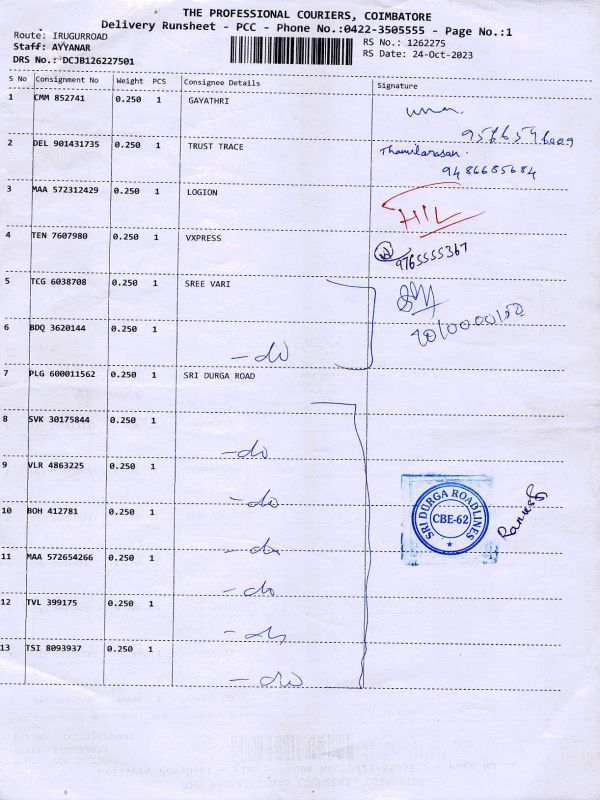 THE PROFESSIONAL COURIERS, COIMBATORE
Delivery Runsheet - PCC - Phone No.:0422-3505555 - Page No.:1
Route: IRUGURROAD
RS No.: 1262275
Staff: AYYANAR
RS Date: 24-Oct-2023
DRS No.: DCJB126227501
S No Consignment No Weight PCS Consignee Details Signature
1 CMM 852741 0.250 1 GAYATHRI
2 DEL 901431735 0.250 1 TRUST TRACE Thamilarasan.
9486685684
3 MAA 572312429 0.250 1 LOGION
4 TEN 7607980 0.250 1 VXPRESS
9765555367
5 TCG 6038708 0.250 1 SREE VARI
6 BDQ 3620144 0.250 1
-do
7 PLG 600011562 0.250 1 SRI DURGA ROAD
8 SVK 30175844 0.250 1
-do
9 VLR 4863225 0.250 1
-do
10 BOH 412781 0.250 1
-do
SRI DURGA ROADLINES
CBE-62
11 MAA 572654266 0.250 1
-do
12 TVL 399175 0.250 1
-do
13 TSI 8093937 0.250 1
-do